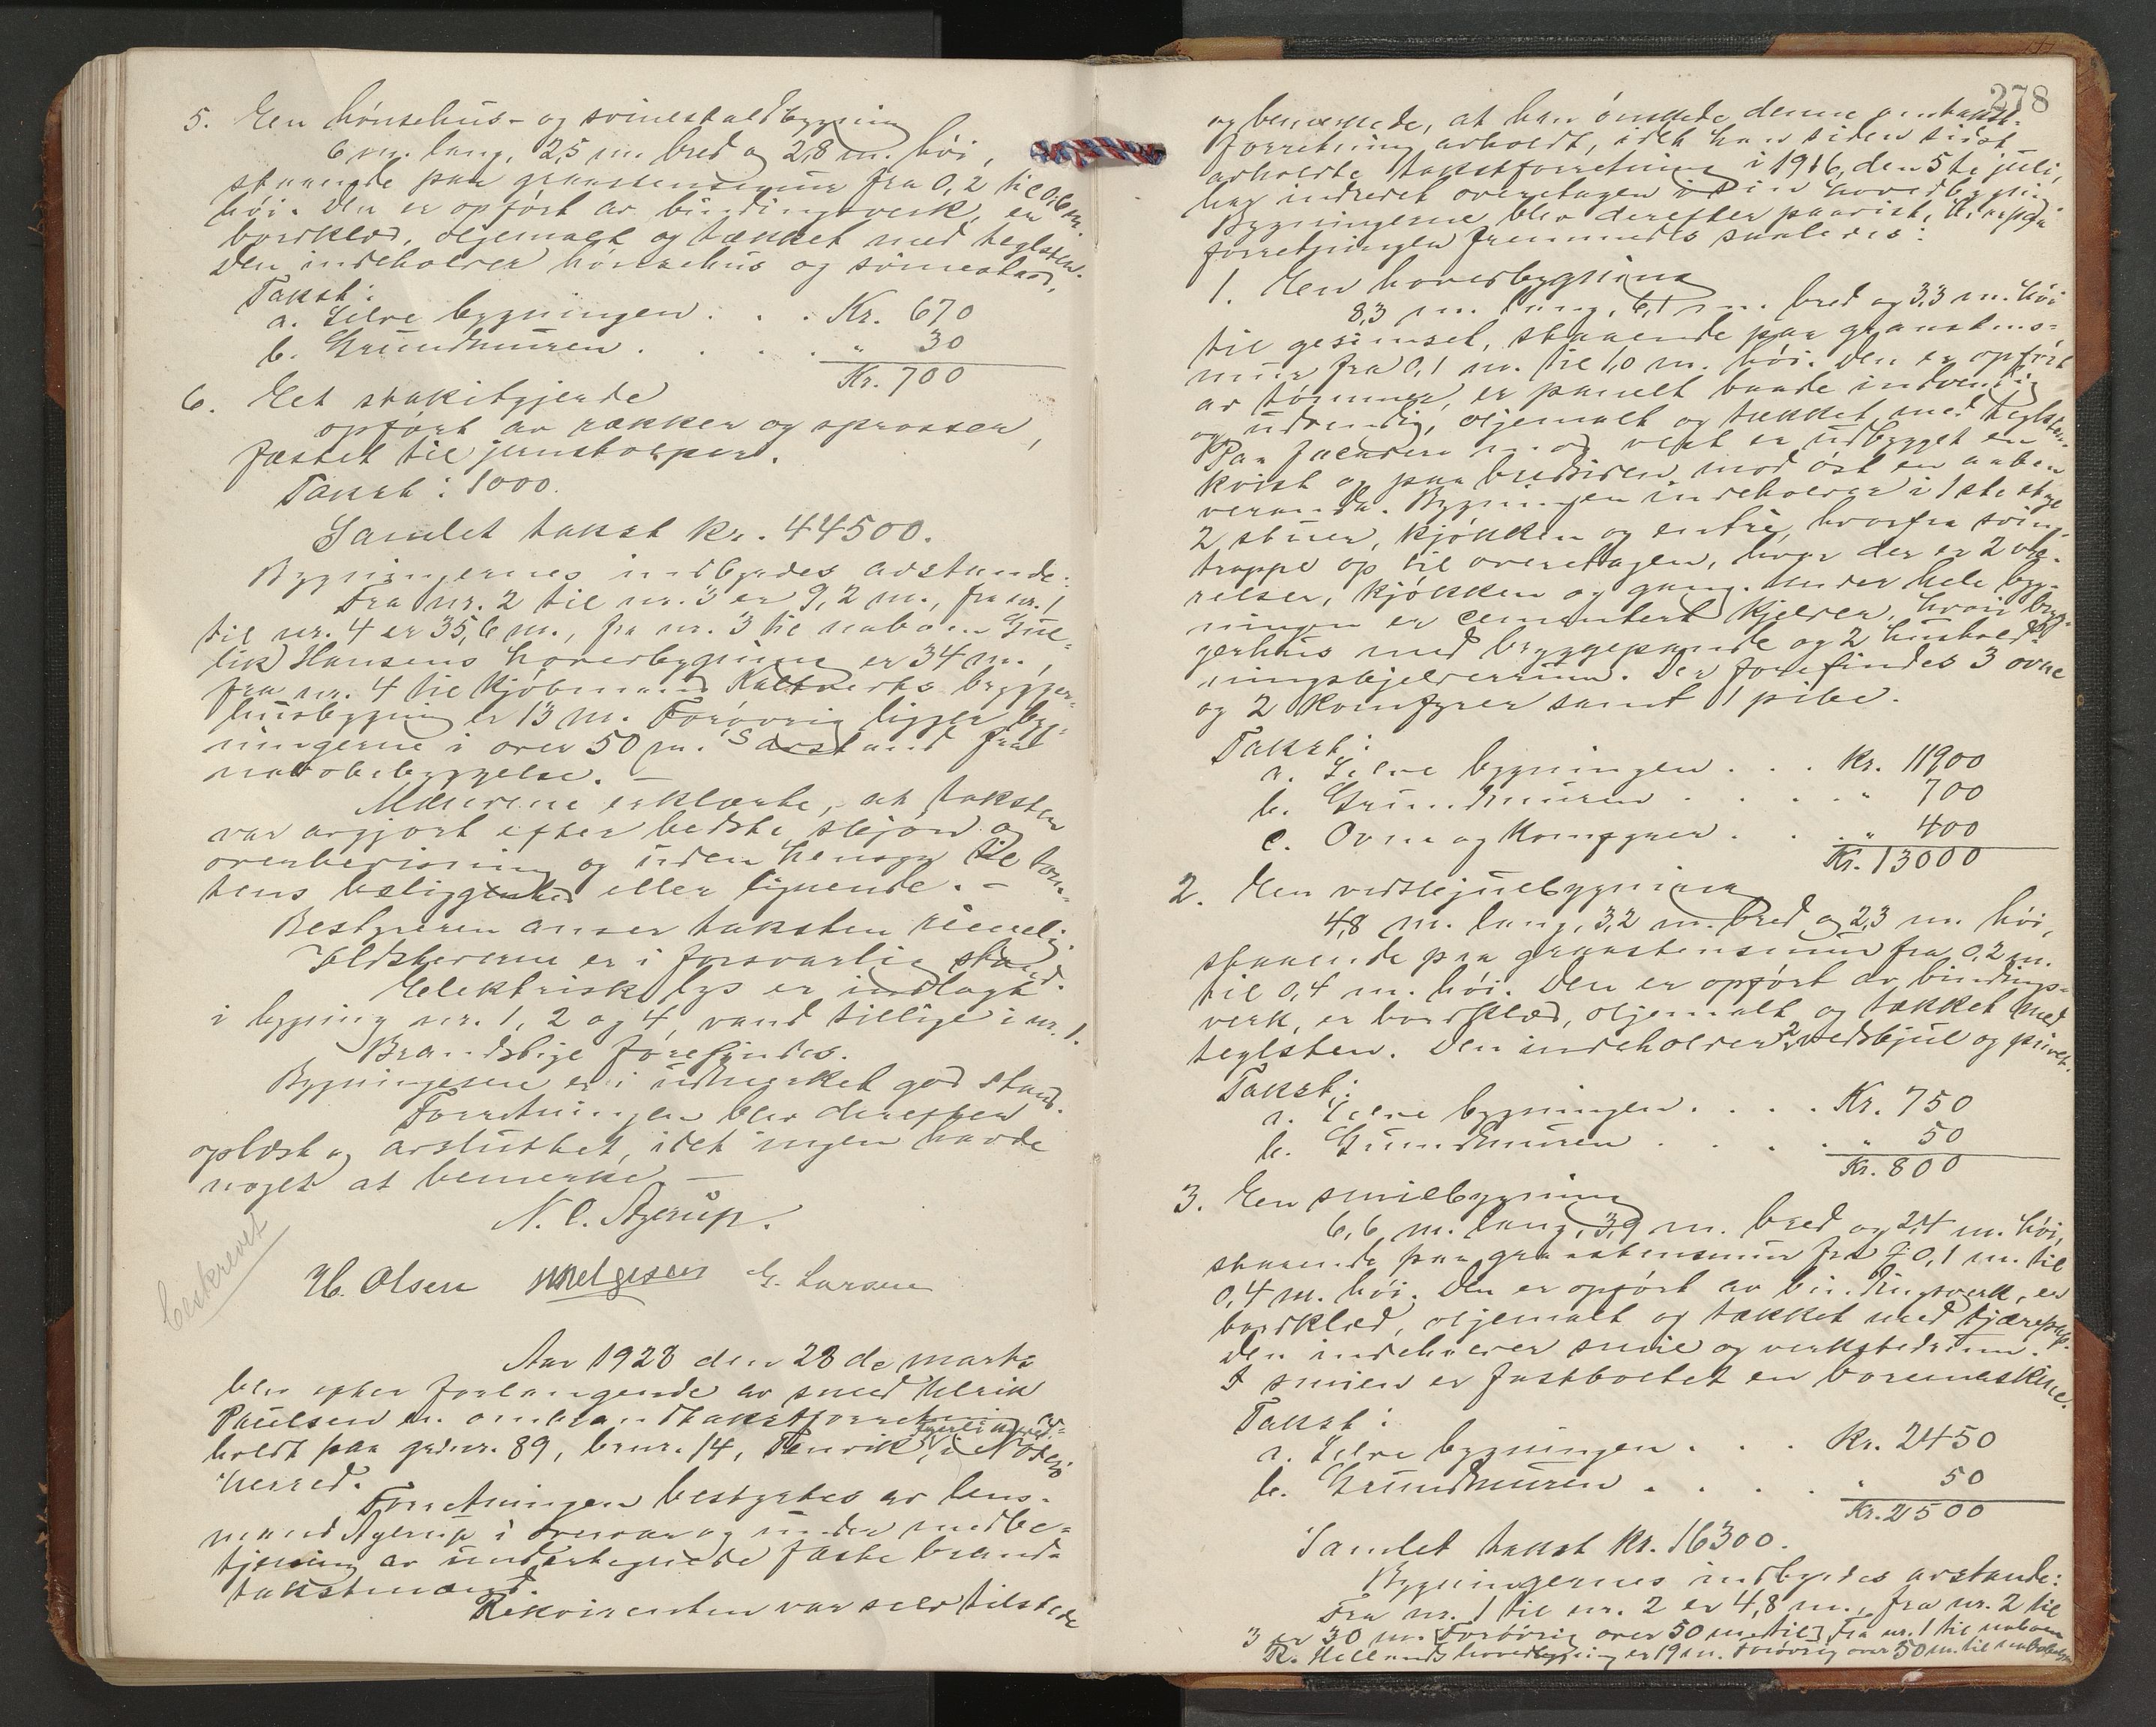 5. Een hønsehus- og svinestaldbygning
6 m. lang, 2,5 m. bred og 2,8 m. høi,
staaende paa graastensmur fra 0,2 til 0,6 m.
høi. Den er opført av bindingsverk, er
bordklæd, oljemalt og tækket med teglsten.
Den indeholder hønsehus og svinestald.
Takst:
a. Selve bygningen . . . Kr. 670
b. Grundmuren . . . . " 30
Kr. 700
6. Et stakitgjerde
opført av rækker og sprosser,
fæstet til jernstolper.
Takst: 1000.
Samlet takst kr. 44500.
Bygningernes indbyrdes avstande:
Fra nr. 2 til nr. 3 er 9,2 m., fra nr. 1
til nr. 4 er 35,6 m., fra nr. 3 til naboen Gul-
lik Hansens hovedbygning er 34 m.,
fra nr. 4 til kjøbmand Kaltvedts brygger-
husbygning er 13 m. Forøvrig ligger byg-
ningerne i over 50 m.s avstand fra
nabobebyggelse. –
Mændene erklærte, at taksten
var avgjort efter bedste skjøn og
overbevisning og uden hensyn til tom-
tens beliggenhed eller lignende. –
Bestyreren anser taksten rimelig
Ildstederne er i forsvarlig stand.
Elektrisk lys er indlagt
i bygning nr. 1, 2 og 4, vand tillige i nr. 1.
Brandstige forefindes.
Bygningerne er i udmerket god stand.
Forretningen blev derefter
oplæst og avsluttet, idet ingen havde
noget at bemerke –
N. C. Agerup.
H. Olsen Melgesen G. Larsen
beskrevet
Aar 1928 den 28de marts
blev efter forlangende av smed Ulrik
Paulsen en ombrandtakstforretning av-
holdt paa grdnr. 89, brnr. 14, Tenvik, i Nøtterø
herred.
Forretningen bestyrtes av lens-
mand Agerup i overvær og under medbe-
tjening av undertegnede faste brand-
takstmænd.
Rekvirenten var selv tilstede
278
og bemerkede, at han ønskede denne omtakst-
forretning avholdt, idet han siden sidst
avholdte takstforretning i 1916, den 5te juli,
har indredet overetagen i sin hovedbygning
Bygningerne blev derefter paavist, hvorpaa
forretningen fremmedes saaledes:
1. Een hovedbygning
8,3 m. lang, 6,1 m. bred og 3,3 m. høi
til gesimset, staaende paa graastens-
mur fra 0,1 m. til 1,0 m. høi. Den er opført
av tømmer, er panelt baade indvendig
og utvendig, oljemalt og tækket med teglsten.
Paa facaden mod vest er udbygget en
kvist og paa bredsiden mod øst en aaben
veranda. Bygningen indeholder i 1ste etage
2 stuer, kjøkken og entré, hvorfra sving-
trappe op til overetagen, hvor der er 2 væ-
relser, kjøkken og gang. Under hele byg-
ningen er cementert kjelder, hvori bryg-
gerhus med bryggepande og 2 hushold-
ningskjelderrum. Der forefindes 3 ovne
og 2 komfyrer samt 1 pibe.
Takst:
a. Selve bygningen . . . kr. 11900
b. Grundmuren . . . . " 700
c. Ovne og komfyrer . . . " 400
Kr. 13000
2. Een vedskjulbygning
4,8 m. lang, 3,2 m. bred og 2,3 m. høi,
staaende paa graastensmur fra 0,2 m.
til 0,4 m. høi. Den er opført av bindings-
verk, er bordklæd, oljemalt og tækket med
teglsten. Den indeholder 2 vedskjul og privet.
Takst:
a. Selve bygningen . . . . Kr. 750
b. Grundmuren . . . . " 50
Kr. 800
3. Een smiebygning
6,6 m. lang, 3,9 m. bred og 2,4 m. høi,
staaende paa graastensmur fra 0,1 m. til
0,4 m. høi. Den er opført av bindingsverk, er
bordklæd, oljemalt og tækket med tjærepap.
Den indeholder smie og verkstedrum.
I smien er fastboltet en boremaskine.
Takst:
a. Selve bygningen . . . Kr. 2450
b. Grundmuren . . . . " 50
Kr. 2500
Samlet takst kr. 16300.
Bygningernes indbyrdes avstande:
Fra nr. 1 til nr. 2 er 4,8 m., fra nr. 2 til
3 er 30 m. [Forøvrig over 50 m. til] Fra nr. 1 til naboen
R. Hellands hovedbygning er 19 m. Forøvrig over 50 m. til nabobebygg